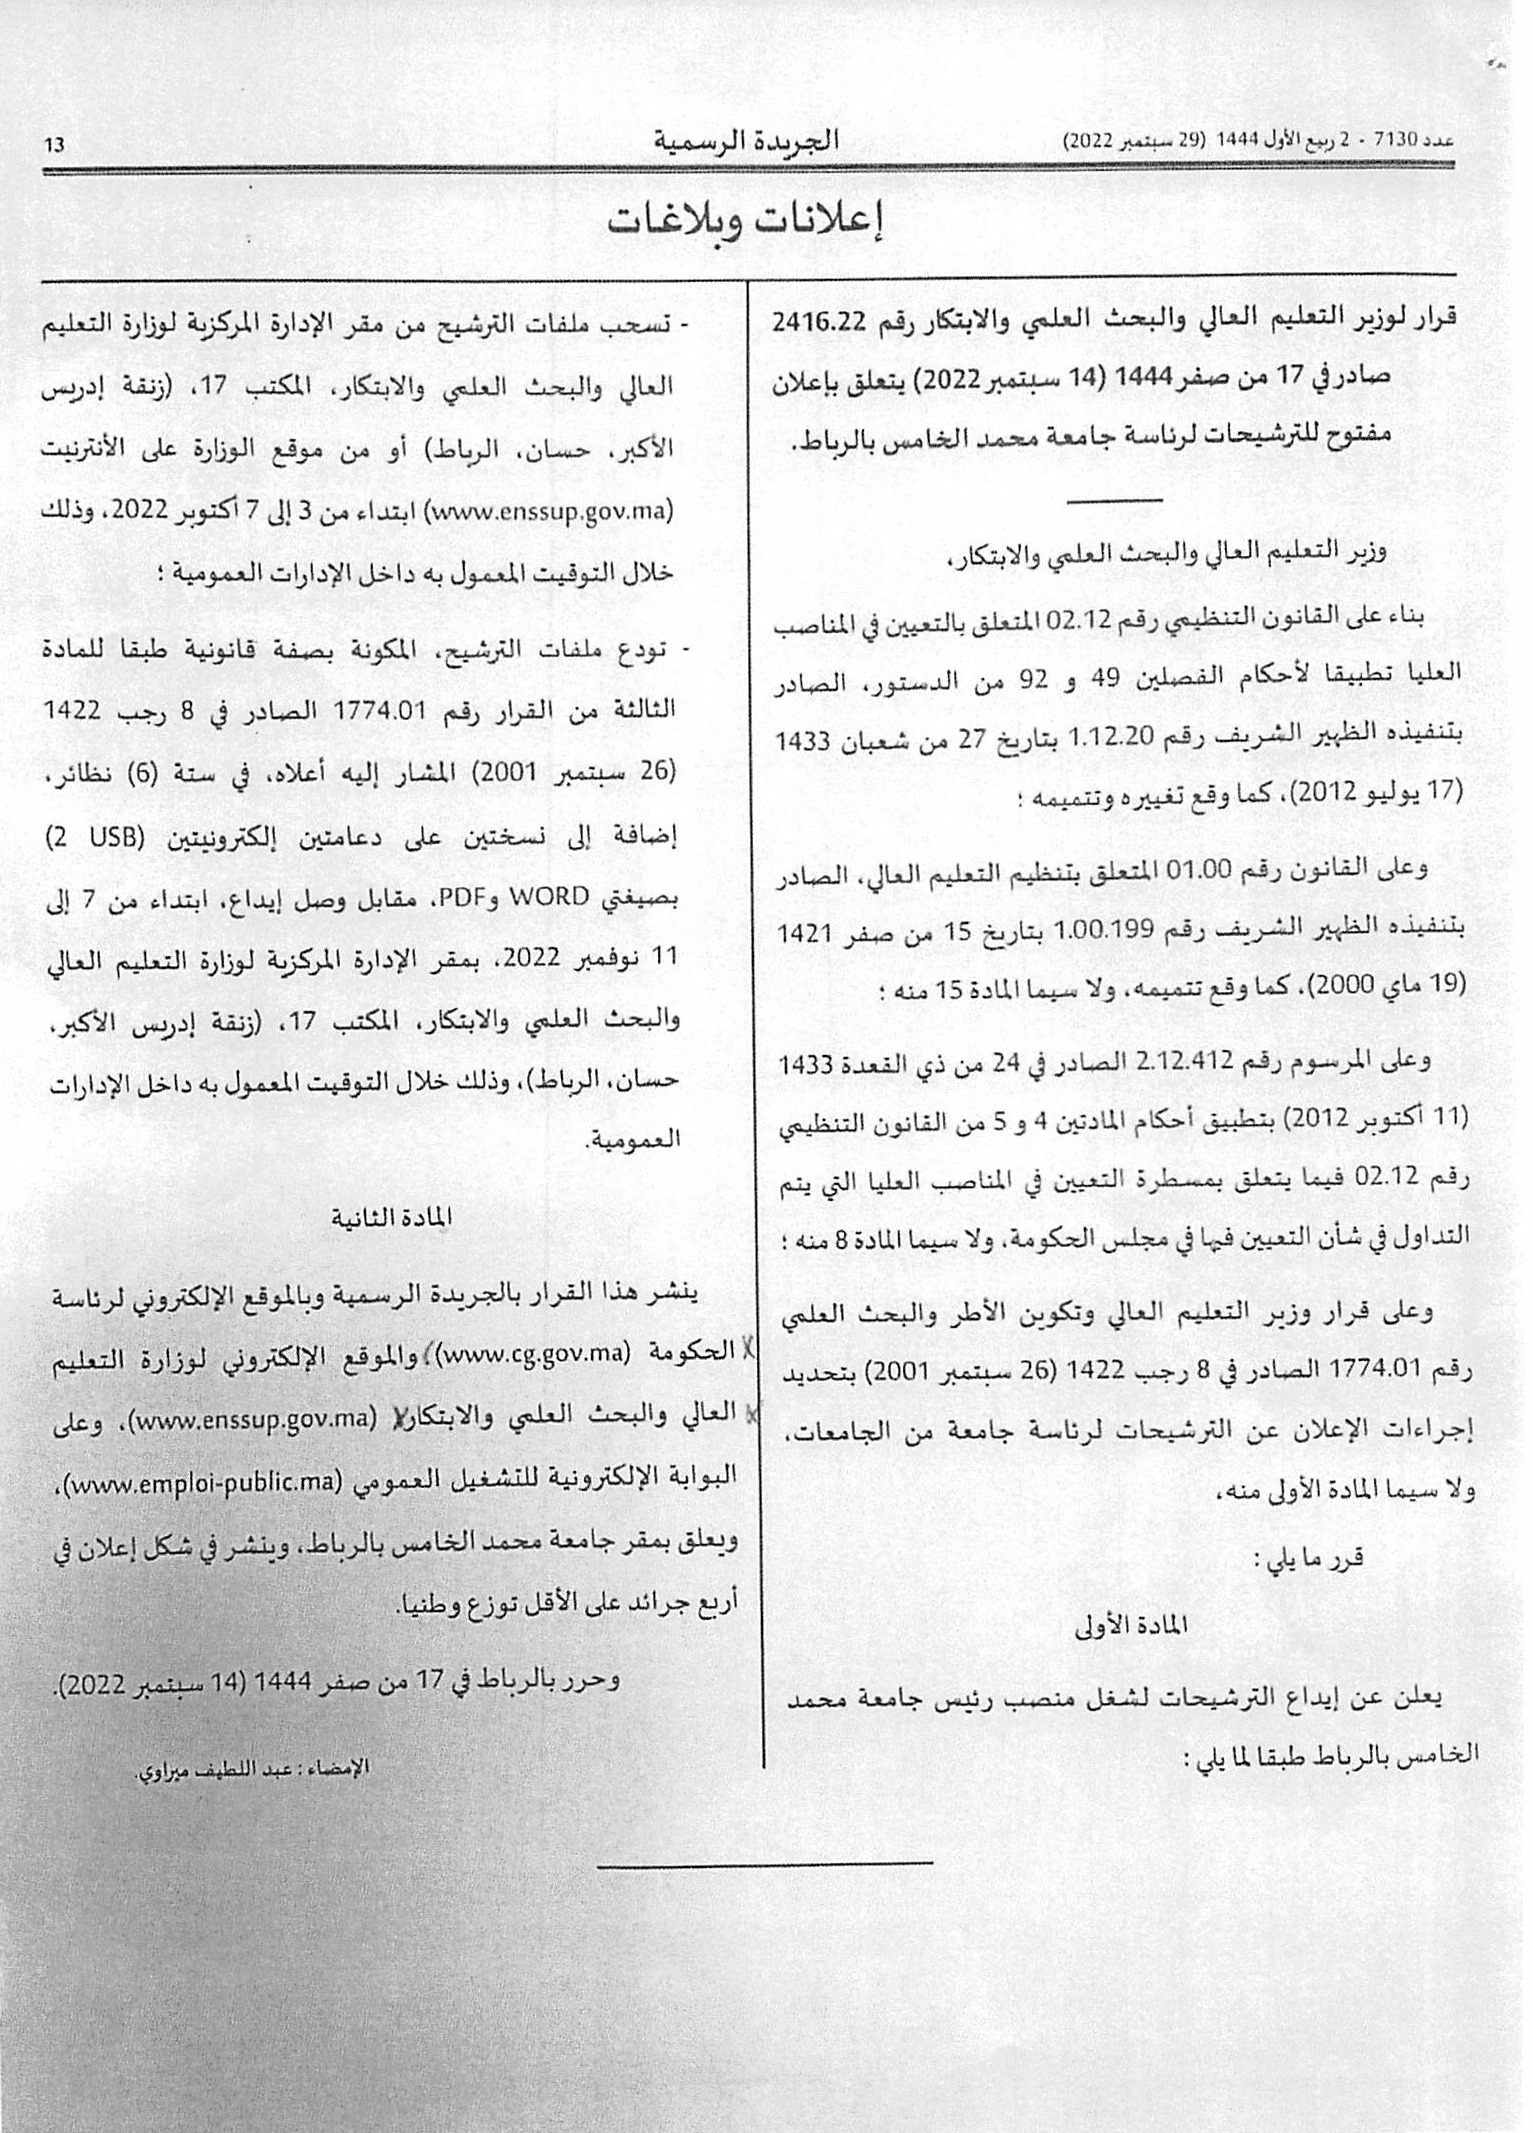 عدد 7130 - 2 ربيع الأول 1444 (29 سبتمبر 2022)
الجريدة الرسمية
13
إعلانات وبلاغات
قرار لوزير التعليم العالي والبحث العلمي والابتكار رقم 2416.22
صادر في 17 من صفر 1444 (14 سبتمبر 2022) يتعلق بإعلان
مفتوح للترشيحات لرئاسة جامعة محمد الخامس بالرباط.
وزير التعليم العالي والبحث العلمي والابتكار،
بناء على القانون التنظيمي رقم 02.12 المتعلق بالتعيين في المناصب
العليا تطبيقا لأحكام الفصلين 49 و 92 من الدستور، الصادر
بتنفيذه الظهير الشريف رقم 1.12.20 بتاريخ 27 من شعبان 1433
(17 يوليو 2012)، كما وقع تغييره وتتميمه ؛
وعلى القانون رقم 01.00 المتعلق بتنظيم التعليم العالي، الصادر
بتنفيذه الظهير الشريف رقم 1.00.199 بتاريخ 15 من صفر 1421
(19 ماي 2000)، كما وقع تتميمه، ولا سيما المادة 15 منه ؛
وعلى المرسوم رقم 2.12.412 الصادر في 24 من ذي القعدة 1433
(11 أكتوبر 2012) بتطبيق أحكام المادتين 4 و 5 من القانون التنظيمي
رقم 02.12 فيما يتعلق بمسطرة التعيين في المناصب العليا التي يتم
التداول في شأن التعيين فيها في مجلس الحكومة، ولا سيما المادة 8 منه ؛
وعلى قرار وزير التعليم العالي وتكوين الأطر والبحث العلمي
رقم 1774.01 الصادر في 8 رجب 1422 (26 سبتمبر 2001) بتحديد
إجراءات الإعلان عن الترشيحات لرئاسة جامعة من الجامعات،
ولا سيما المادة الأولى منه،
قرر ما يلي :
المادة الأولى
يعلن عن إيداع الترشيحات لشغل منصب رئيس جامعة محمد
الخامس بالرباط طبقا لما يلي :
- تسحب ملفات الترشيح من مقر الإدارة المركزية لوزارة التعليم
العالي والبحث العلمي والابتكار، المكتب 17، (زنقة إدريس
الأكبر، حسان، الرباط) أو من موقع الوزارة على الأنترنيت
(www.enssup.gov.ma) ابتداء من 3 إلى 7 أكتوبر 2022، وذلك
خلال التوقيت المعمول به داخل الإدارات العمومية ؛
- تودع ملفات الترشيح، المكونة بصفة قانونية طبقا للمادة
الثالثة من القرار رقم 1774.01 الصادر في 8 رجب 1422
(26 سبتمبر 2001) المشار إليه أعلاه، في ستة (6) نظائر،
إضافة إلى نسختين على دعامتين إلكترونيتين (2 USB)
بصيغتي WORD وPDF، مقابل وصل إيداع، ابتداء من 7 إلى
11 نوفمبر 2022، بمقر الإدارة المركزية لوزارة التعليم العالي
والبحث العلمي والابتكار، المكتب 17، (زنقة إدريس الأكبر،
حسان، الرباط)، وذلك خلال التوقيت المعمول به داخل الإدارات
العمومية.
المادة الثانية
ينشر هذا القرار بالجريدة الرسمية وبالموقع الإلكتروني لرئاسة
الحكومة (www.cg.gov.ma)، والموقع الإلكتروني لوزارة التعليم
العالي والبحث العلمي والابتكار (www.enssup.gov.ma)، وعلى
البوابة الإلكترونية للتشغيل العمومي (www.emploi-public.ma)،
ويعلق بمقر جامعة محمد الخامس بالرباط، وينشر في شكل إعلان في
أربع جرائد على الأقل توزع وطنيا.
وحرر بالرباط في 17 من صفر 1444 (14 سبتمبر 2022).
الإمضاء : عبد اللطيف ميراوي.